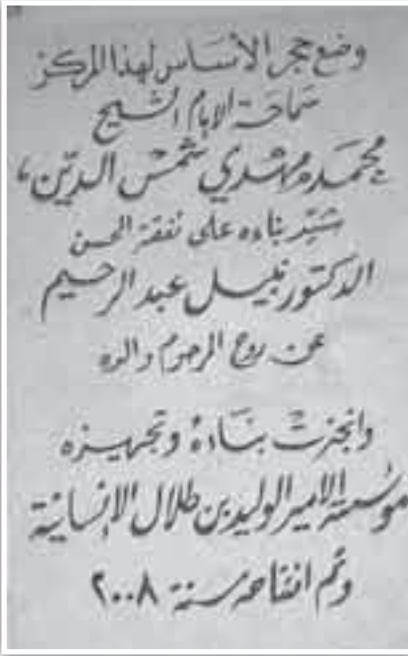 وضع حجر الأساس لهذا المركز
سماحة الإمام الشيخ
محمد مهدي شمس الدين،
شيّد بناءه على نفقة المحسن
الدكتور نبيل عبد الرحيم
عن روح المرحوم والده
وأنجزت بناءهُ وتجهيزه
مؤسسة الامير الوليد بن طلال الإنسانية
وتم افتتاحه سنة ٢٠٠٨